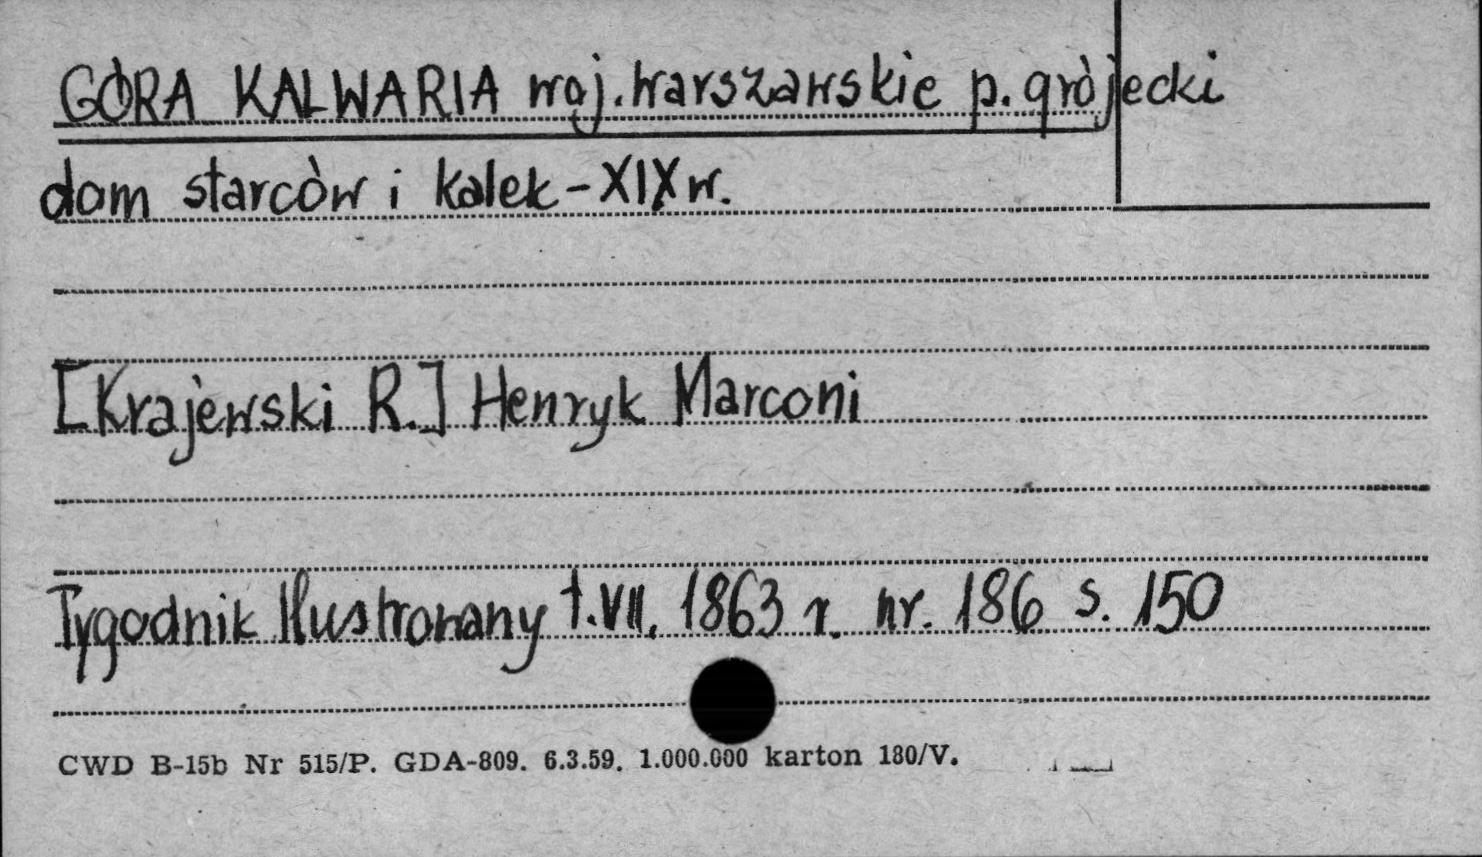 GÓRA KALWARIA woj. warszawskie p. grójecki
dom starców i kalek - XIX w.
[Krajewski R.] Henryk Marconi
Tygodnik Ilustrowany t. VII, 1863 r. nr. 186 s. 150
CWD B-15b Nr 515/P. GDA-809. 6.3.59. 1.000.000 karton 180/V.